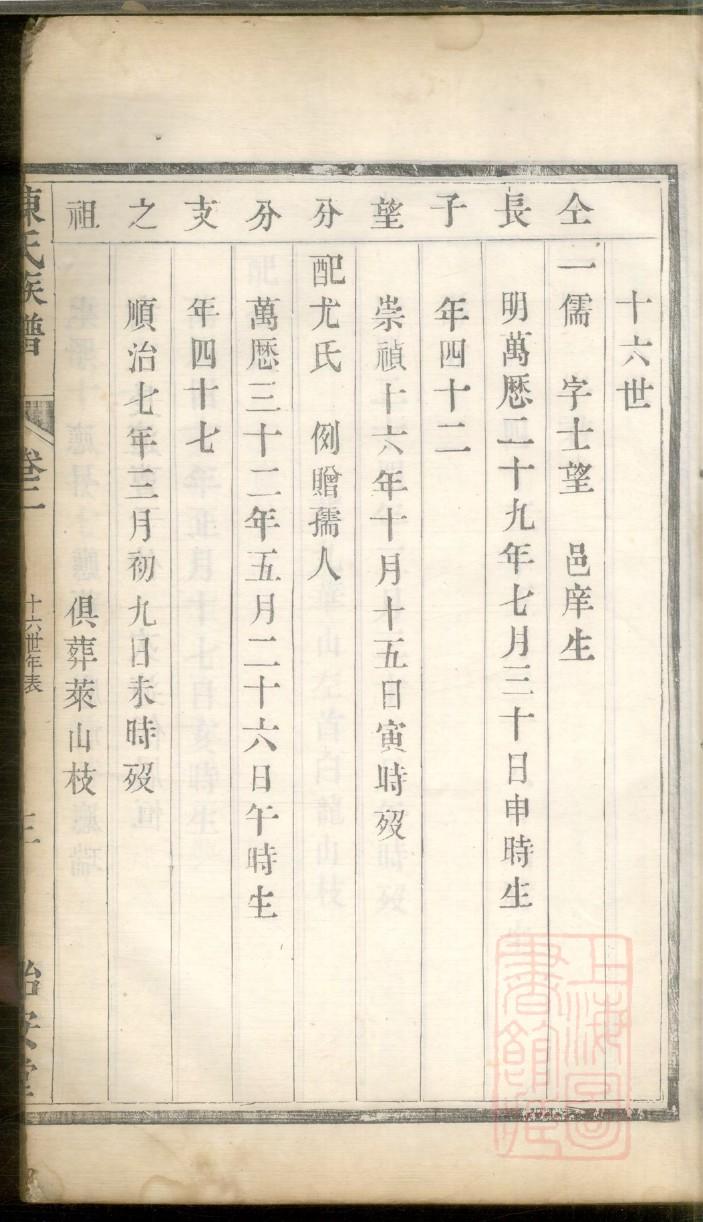 十六世
仝長子望分分支之祖
一儒 字士望 邑庠生
明萬厯二十九年七月三十日申時生
年四十二
崇禎十六年十月十五日寅時歿
配尤氏 例贈孺人
萬厯三十二年五月二十六日午時生
年四十七
順治七年三月初九日未時歿
俱葬萊山枝
陳氏族譜
十六世年表
上海圖
書館藏